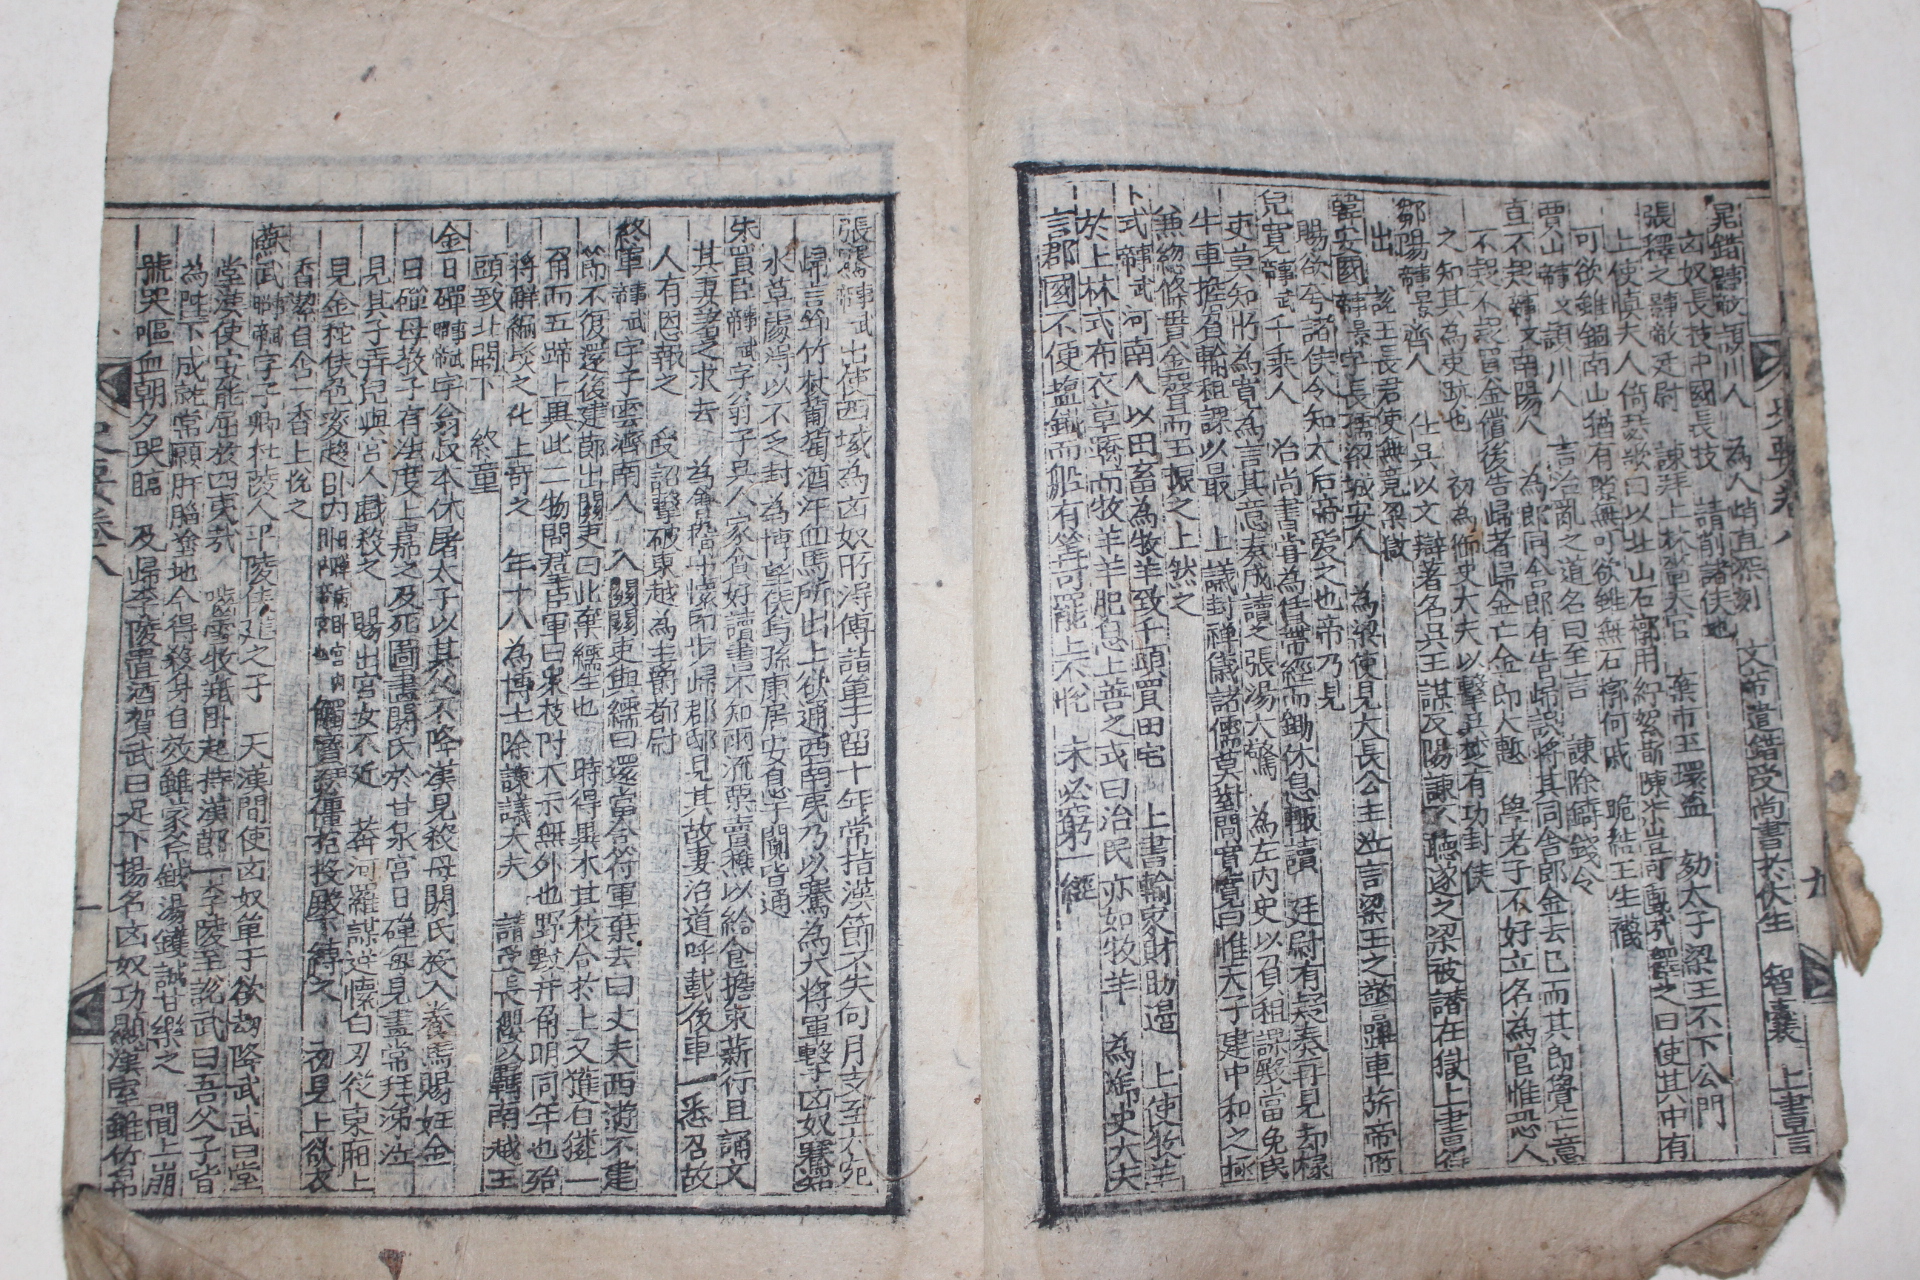 晁錯 潁川人 為人峭直深刻 文帝遣錯受尚書於伏生 智囊 上書言
凶奴長技中國長技 請削諸侯地
張釋之 廷尉 諫拜上林嗇夫 棄市玉環盃 劾太子梁王不下公門
上使慎夫人倚瑟歌曰以北山石槨用紵絮斮陳漆豈可動哉釋之曰使其中有
可欲雖錮南山猶有隙無可欲雖無石槨何戚 跪結王生襪
賈山 潁川人 言治亂之道名曰至言 諫除鑄錢令
直不疑 文南陽人 為郎同舍郎有告歸誤將其同舍郎金去已而其郎覺亡意
不疑不疑買金償後告歸者歸金亡金郎大慙 學老子不好立名為官惟恐人
之知其為吏跡也 初為御史大夫以擊吳楚有功封侯
鄒陽 景齊人 仕吳以文辯著名吳王謀反陽諫不聽遂之梁被譖在獄上書得
出 說王長君使無竟梁獄
韓安國 景字長孺梁城安人 為梁使見大長公主泣言梁王之 車旂帝所
賜欲夸諸侯令知太后帝愛之也帝乃見
兒寬 武千乘人 治尚書 為 帶經而鋤休息輒讀 廷尉有疑奏再見却掾
吏莫知所為寬為言其意奏成讀之張湯大驚 為左內史以負租課殿當免民
牛車擔負輸租課以最 上議封禪儀諸儒莫對問寬寬曰惟天子建中和之極
兼總條貫金聲而玉振之上然之
卜式 武河南人以田畜為牧羊致千頭買田宅 上書輸家財助邊 上使牧羊
於上林式布衣草 而牧羊羊肥息上善之式曰治民亦如牧羊 為御史大夫
言郡國不便鹽鐵而船有筭可罷上不悅 未必窮一經
張騫 武出使西域為凶奴所得傳詣單于留十年常指漢節不失何月支至大宛
歸言筇竹杖葡萄酒汗血馬所出上欲通西南夷乃以騫為大將軍擊凶奴騫知
水草處得以不乏封為博望侯烏孫康居安息于闐皆通
朱買臣 武字翁子吳人家貧好讀書不知 流粟賣樵以給食擔束薪行且誦文
其妻羞之求去 為會稽 懷印步歸郡邸見其故妻治道呼載後車一悉召故
人有恩報之 受詔擊破東越為主爵都尉
終軍 武字子雲濟南人 入關關吏與繻曰還當合符軍棄去曰丈夫西遊不建
節不復還後建節出關吏曰此棄繻生也 時得異木其枝合於上又獲白麟一
角而五蹄上異此二物問羣臣軍曰眾枝附木示無外也野獸并角明同年也殆
將解編髮之化上奇之 年十八為博士除諫議大夫 請受長纓以羈南越王
頭致北闕下 終童
金日磾 武字翁叔本休屠太子以其父不降漢見殺母閼氏沒入養馬賜姓金
日磾母教子有法度上嘉之及死圖畫閼氏於甘泉宮日磾每見畫常拜涕泣
見其子弄兒與宮人戲殺之 賜出宮女不近 莽何羅謀逆懷白刃從東廂上
見金挖佚色変趨臥內 觸寶瑟僵 投殿 縛之 初見上欲衣
香潔自含二香上悅之
蘇武 字子卿杜陵人平陵侯建之子 天漢間使凶奴單于欲劫降武武曰堂
堂漢使安能屈於四夷哉 嚙雪牧羝卧起持漢節 一李陵至說武曰吾父子皆
為陛下成就常願肝腦塗地今得殺身自效雖蒙斧鉞湯鑊誠甘樂之 間上崩
號哭嘔血朝夕哭臨 及歸李陵置酒賀武曰足下揚名凶奴功顯漢室雖竹帛